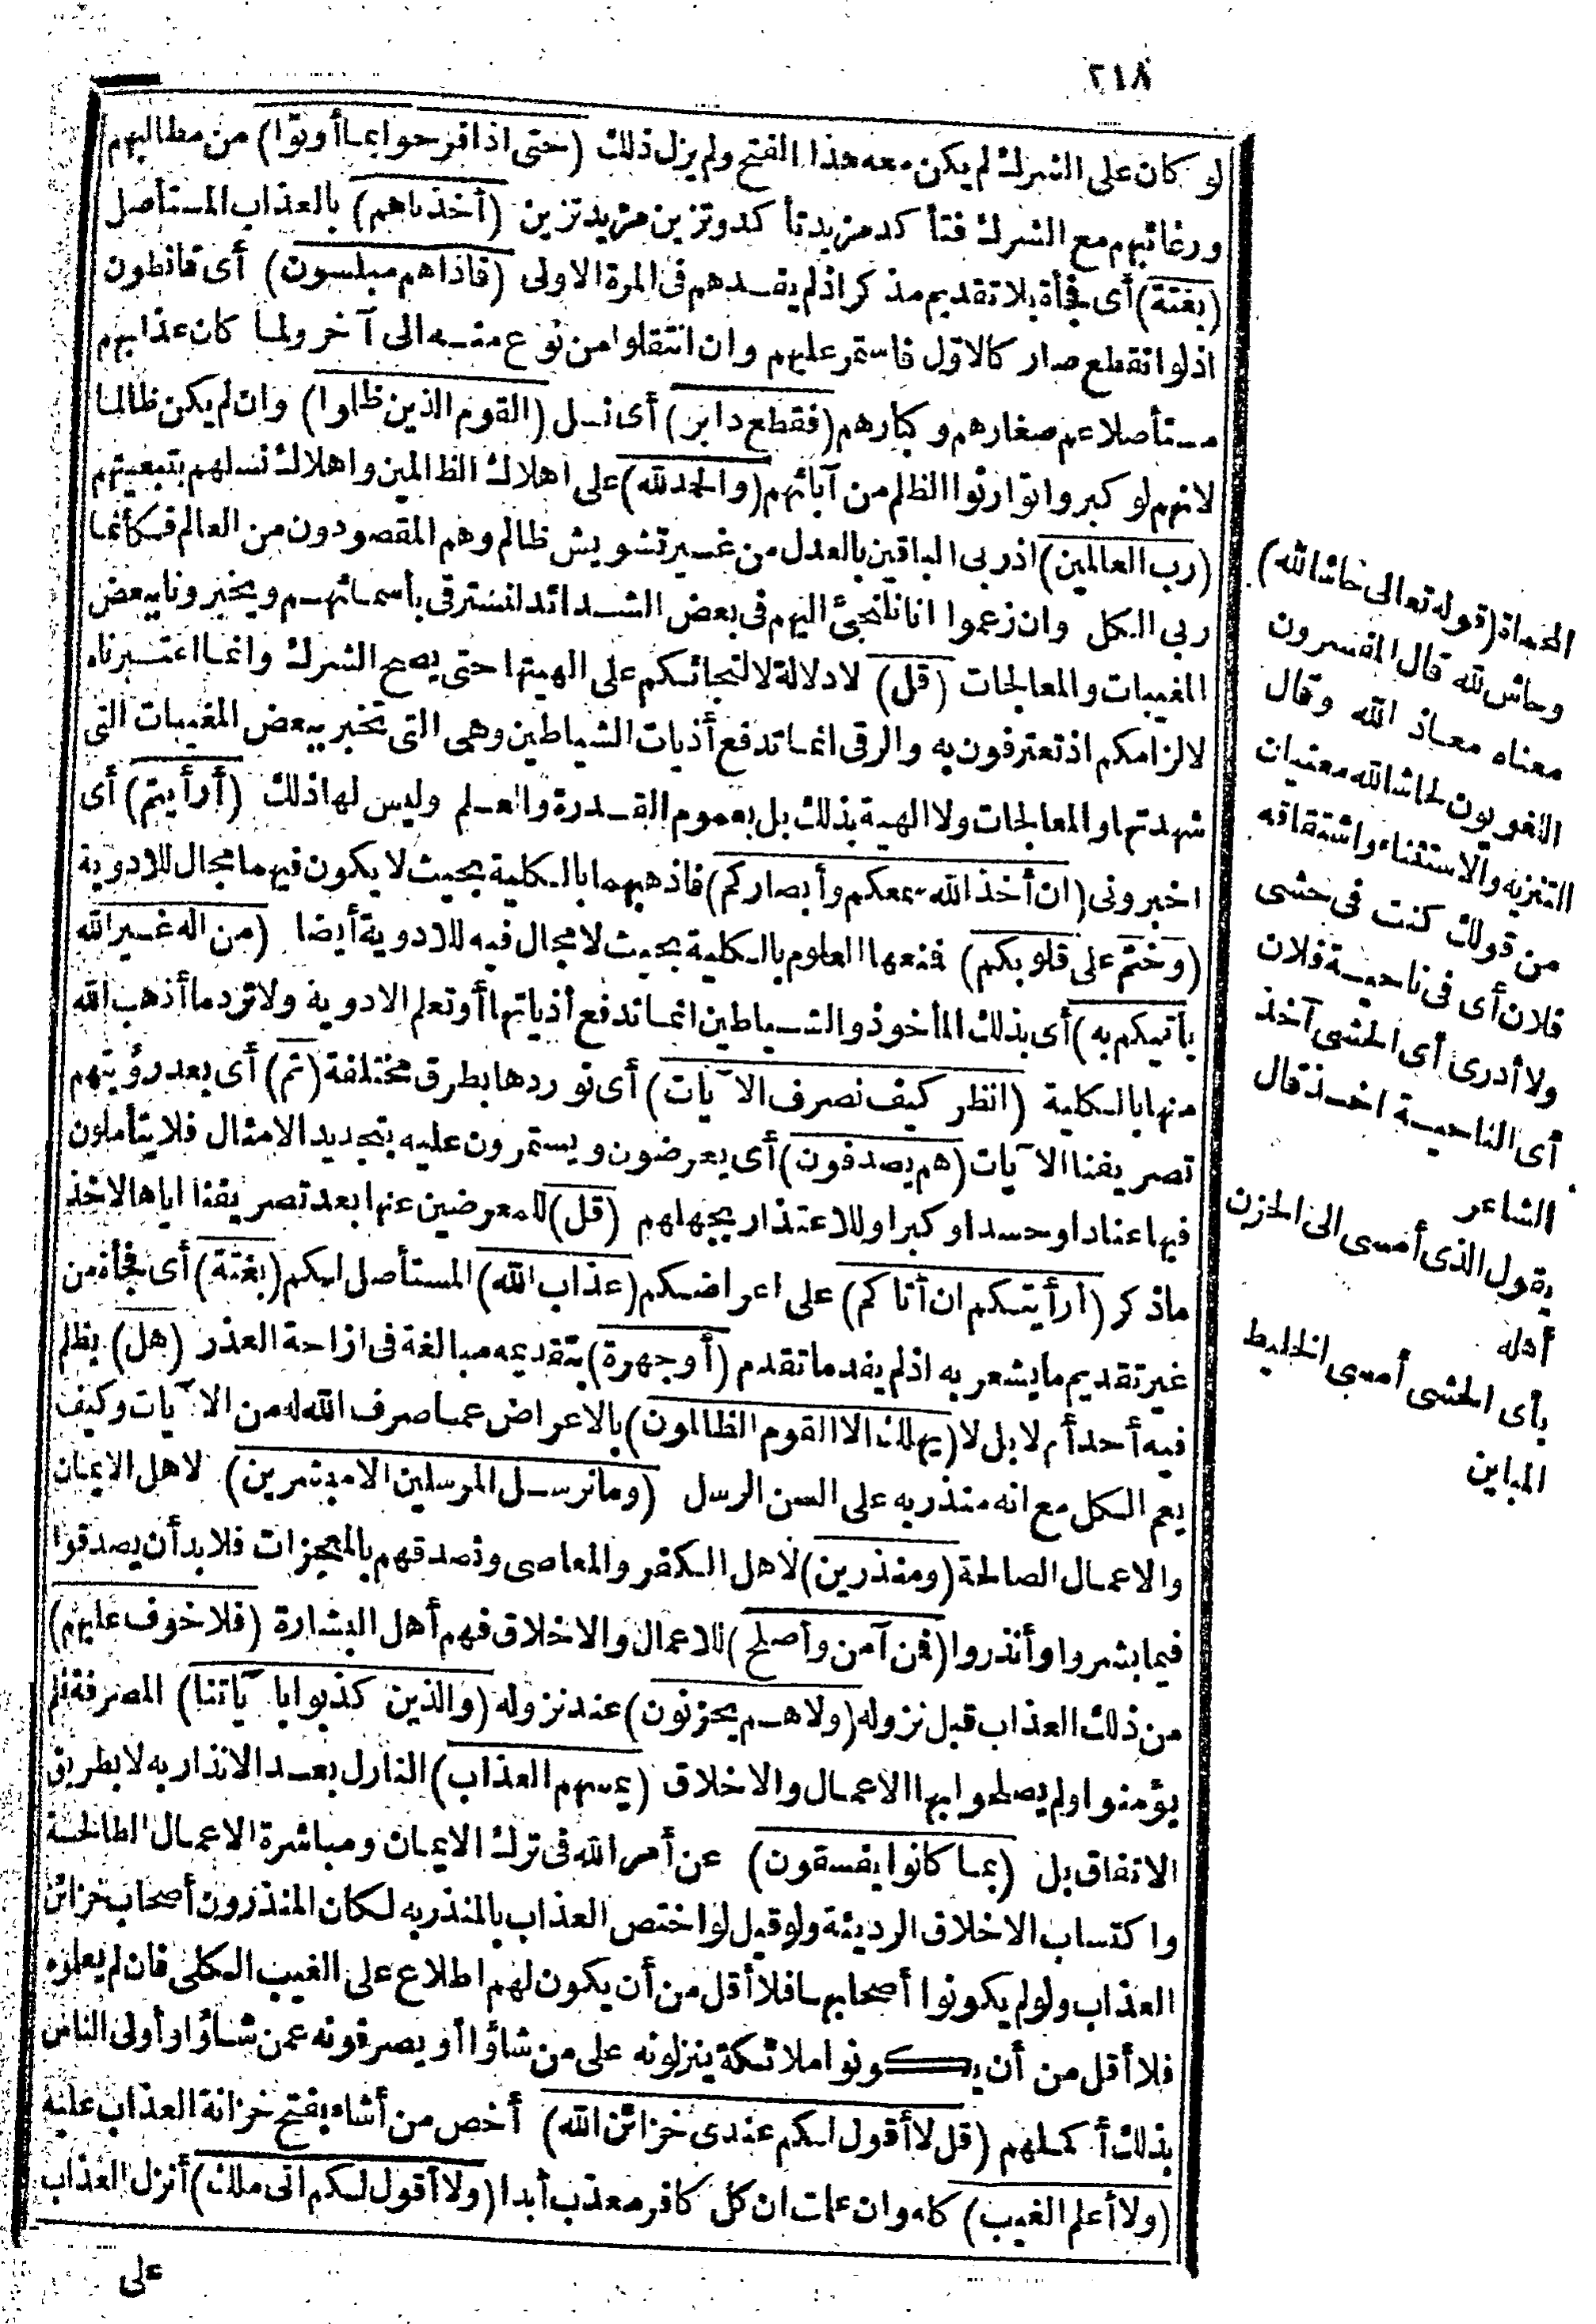 ٢١٨
لو كان على الشرك لم يكن معه هذا الفتح ولم يزل ذلك (حتى اذا فرحوا بما أوتوا) من مطالبهم
ورغائبهم مع الشرك فتأكد مزيد تأكد وتزين مزيد تزين (أخذناهم) بالعذاب المستأصل
(بغتة) أى فجأة بلا تقديم مذكر اذ لم يفدهم فى المرة الاولى (فاذا هم مبلسون) أى قانطون
اذ لو انقطع صار كالاول فاستمر عليهم وان انتقلوا من نوع منه الى آخر ولما كان عذابهم
مستأصلا عم صغارهم وكبارهم (فقطع دابر) أى نسل (القوم الذين ظلوا) وان لم يكن ظالما
لانهم لو كبروا توارثوا الظلم من آبائهم (والحمد لله) على اهلاك الظالمين واهلاك نسلهم بتبعيتهم
(رب العالمين) اذ ربى الباقين بالعدل من غير تشويش ظالم وهم المقصودون من العالم فكأنما
ربى الكل وان زعموا انا نلتجئ اليهم فى بعض الشدائد لنسترقى بأسمائهم ويخبروننا ببعض
المغيبات والمعالجات (قل) لا دلالة لالتجائكم على الهيتها حتى يصح الشرك وانما اعتبرناه
لالزامكم اذ تعترفون به والرقى انما تدفع أذيات الشياطين وهى التى تخبر ببعض المغيبات التى
شهدتها والمعالجات ولا الهية بذلك بل بعموم القدرة والعلم وليس لها ذلك (أرأيتم) أى
اخبرونى (ان أخذ الله سمعكم وأبصاركم) فاذهبهما بالكلية بحيث لا يكون فيهما مجال للادوية
(وختم على قلوبكم) فمنعها العلوم بالكلية بحيث لا مجال فيه للادوية أيضا (من اله غير الله
يأتيكم به) أى بذلك المأخوذ والشياطين انما تدفع أذياتها أو تعلم الادوية ولا ترد ما أذهب الله
منها بالكلية (انظر كيف نصرف الآيات) أى نوردها بطرق مختلفة (ثم) أى بعد رؤيتهم
تصريفنا الآيات (هم يصدفون) أى يعرضون ويستمرون عليه بتجديد الامثال فلا يتأملون
فيها عنادا وحسدا وكبرا وللاعتذار بجهلهم (قل) للمعرضين عنها بعد تصريفنا اياها لاخذ
ما ذكر (أرأيتكم ان أتاكم) على اعراضكم (عذاب الله) المستأصل لكم (بغتة) أى فجأة من
غير تقديم ما يشعر به اذ لم يفد ما تقدم (أو جهرة) بتقديمه مبالغة فى ازاحة العذر (هل) يظلم
فيه أحد أم لا بل لا (يهلك الا القوم الظالمون) بالاعراض عما صرف الله له من الآيات وكيف
يعم الكل مع انه منذر به على السن الرسل (وما نرسل المرسلين الا مبشرين) لاهل الايمان
والاعمال الصالحة (ومنذرين) لاهل الكفر والمعاصى ونصدقهم بالمعجزات فلا بد أن يصدقوا
فيما بشروا وأنذروا (فمن آمن وأصلح) للاعمال والاخلاق فهم أهل البشارة (فلا خوف عليهم)
من ذلك العذاب قبل نزوله (ولا هم يحزنون) عند نزوله (والذين كذبوا بآياتنا) المصرفة فلم
يؤمنوا ولم يصلحوا بها الاعمال والاخلاق (يمسهم العذاب) النازل بعد الانذار به لا بطريق
الاتفاق بل (بما كانوا يفسقون) عن أمر الله فى ترك الايمان ومباشرة الاعمال الطالحة
واكتساب الاخلاق الرديئة ولو قيل لو اختص العذاب بالمنذر به لكان المنذرون أصحاب خزائن
العذاب ولو لم يكونوا أصحابها فلا أقل من أن يكون لهم اطلاع على الغيب الكلى فان لم يعلموه
فلا أقل من أن يكونوا ملائكة ينزلونه على من شاؤا أو يصرفونه عمن شاؤا وأولى الناس
بذلك أكملهم (قل لا أقول لكم عندى خزائن الله) أخص من أشاء بفتح خزانة العذاب عليه
(ولا أعلم الغيب) كله وان علمت ان كل كافر معذب أبدا (ولا أقول لكم انى ملك) أنزل العذاب
على
الحماة (قوله تعالى حاشا لله)
وحاش لله قال المفسرون
معناه معاذ الله وقال
اللغويون لحاشا لله معنيان
التنزيه والاستثناء واشتقاقه
من قولك كنت فى حشى
فلان أى فى ناحية فلان
ولا أدرى أى الحشى آخذ
أى الناحية اخذ قال
الشاعر
يقول الذى أمسى الى الحزن
أهله
بأى الحشى أمسى الخليط
المباين